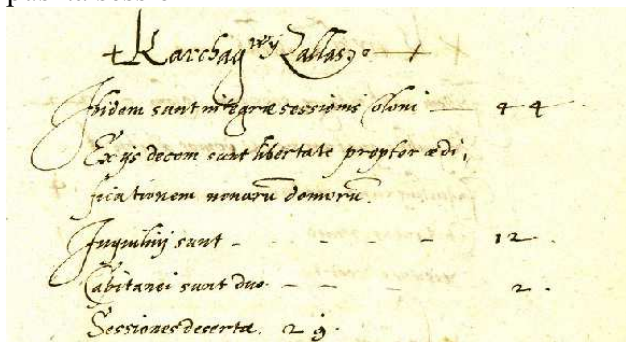 + Karchag wÿ Zallas +
Ibidem sunt integræ sessionis Coloni — 44
Ex ijs decem sunt libertate propter ædi,
ficationem novarū domorū.
Inquilinj sunt - - - - - 12.
Capitanei sunt duo. - - - - 2.
Sessiones desertæ. 29.